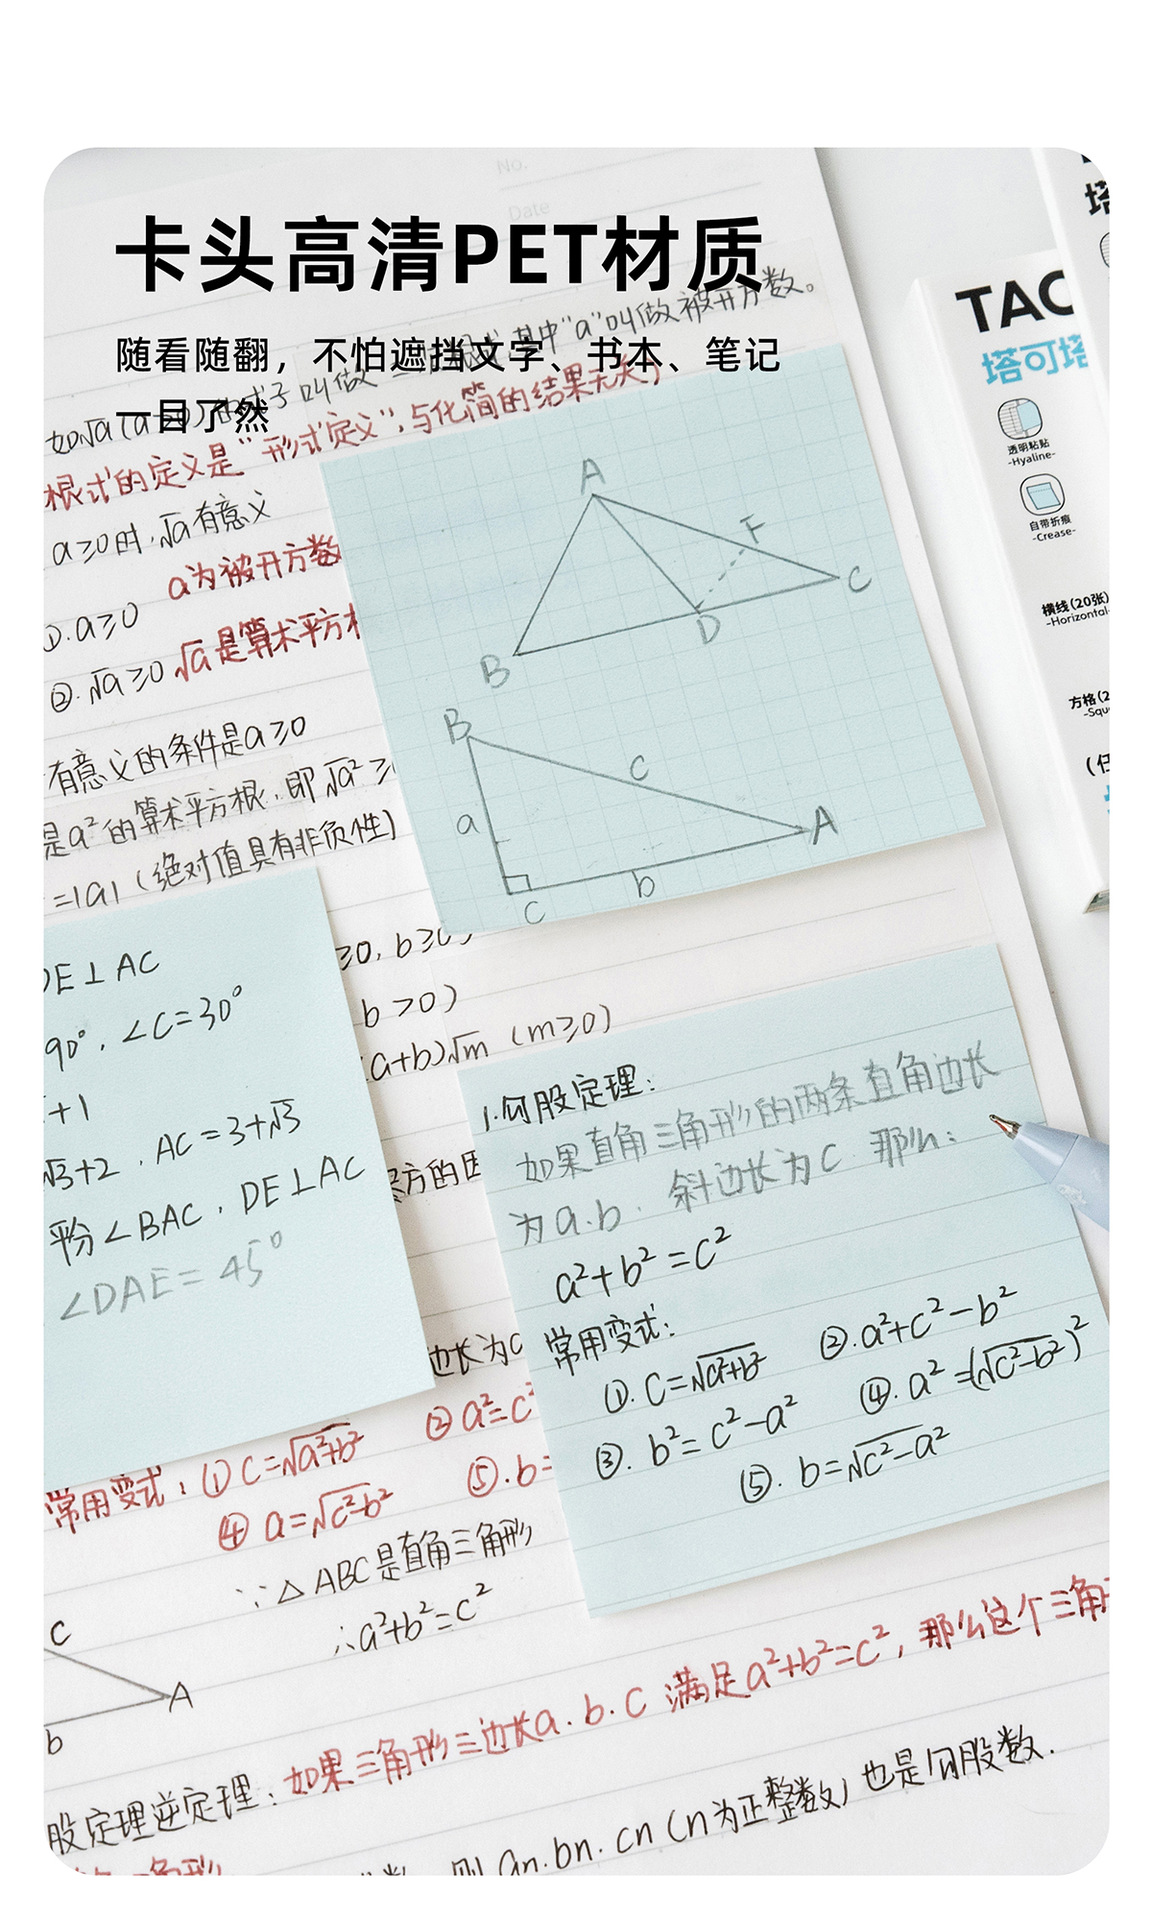 No.
Date
卡头高清PET材质
随看随翻，不怕遮挡文字、书本、笔记
一目了然
叫做被开方数。
根式的定义是"形式定义",与化简的结果无关)
a≥0时,√a有意义
a为被开方数
①.a≥0
②.√a≥0 √a是算术平方根
有意义的条件是a≥0
是a²的算术平方根,即√a²≥
=|a|(绝对值具有非负性)
A
F
C
D
B
B
c
a
A
b
C
≥0,b≥0
b>0)
(a+b)√m (m≥0)
DE⊥AC
90°,∠C=30°
+1
√3+2,AC=3+√3
平分∠BAC,DE⊥AC
∠DAE=45°
1.勾股定理:
如果直角三角形的两条直角边长
为a.b. 斜边长为c 那么:
a²+b²=c²
常用变式:
①.c=√a²+b² ②.a²+c²-b²
③.b²=c²-a² ④.a²=(√c²-b²)²
⑤.b=√c²-a²
边长为c
常用变式:①c=√a²+b² ②a²=c²
④a=√c²-b² ⑤.b=
∵△ABC是直角三角形
∴a²+b²=c²
C
A
b
股定理逆定理:如果三角形三边长a.b.c 满足a²+b²=c²,那么这个三角形
则an.bn.cn(n为正整数)也是勾股数.
TACO
塔可塔
透明粘贴
-Hyaline-
自带折痕
-Crease-
横线(20张)
-Horizontal-
方格(2
-Squ
塔